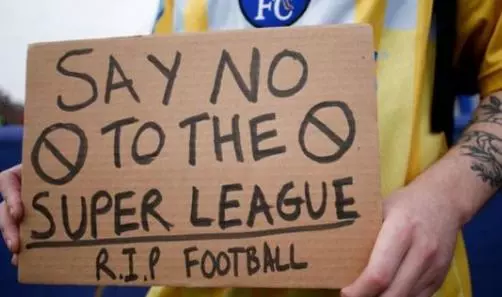 FC
SAY NO
TO THE
SUPER LEAGUE
R.I.P FOOTBALL